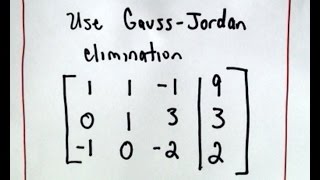 Use Gauss-Jordan
elimination
1 1 -1 9
0 1 3 3
-1 0 -2 2